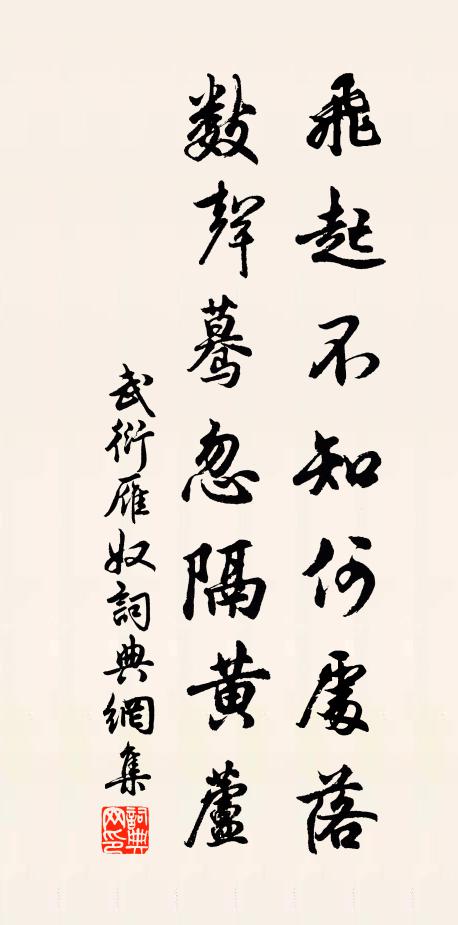 飛起不知何處落
數聲驀忽隔黃蘆
武衍雁奴詞典網集
詞典網印